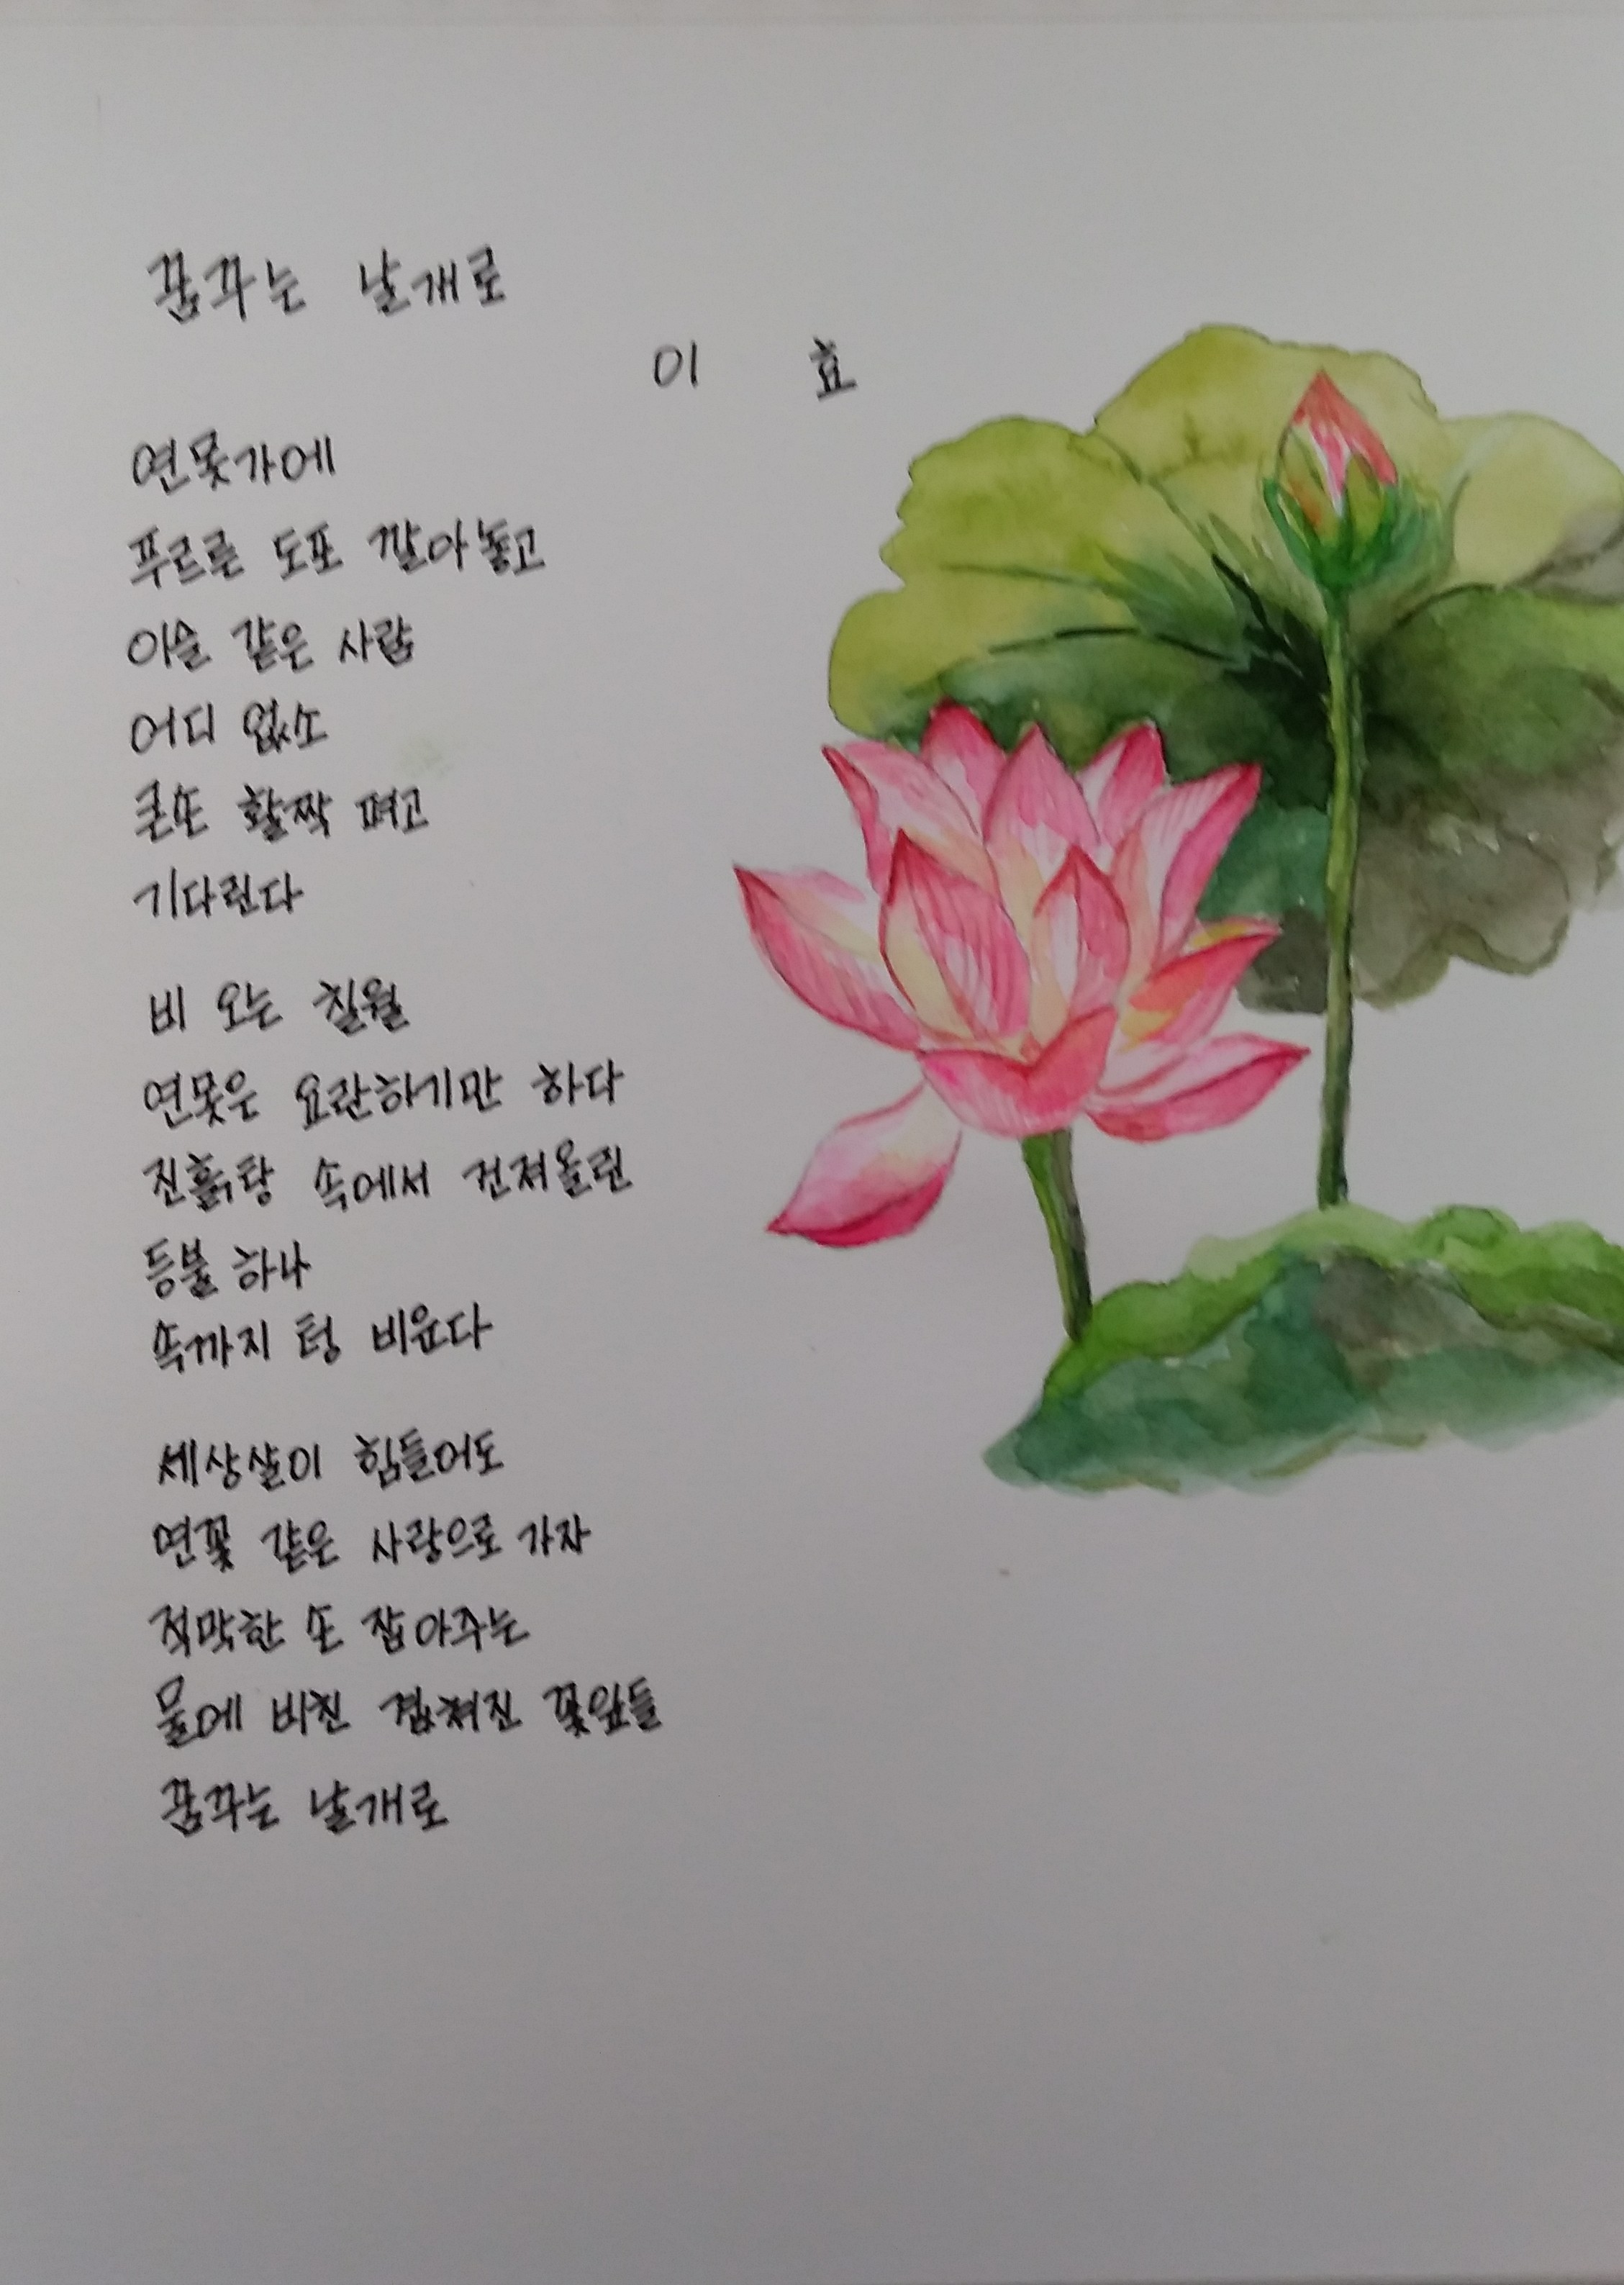 꿈꾸는 날개로
이 효
연못가에
푸르른 도포 깔아놓고
이슬 같은 사람
어디 없소
큰손 활짝 펴고
기다린다
비 오는 칠월
연못은 요란하기만 하다
진흙탕 속에서 건져올린
등불 하나
속까지 텅 비운다
세상살이 힘들어도
연꽃 같은 사랑으로 가자
적막한 손 잡아주는
물에 비친 겹쳐진 꽃잎들
꿈꾸는 날개로